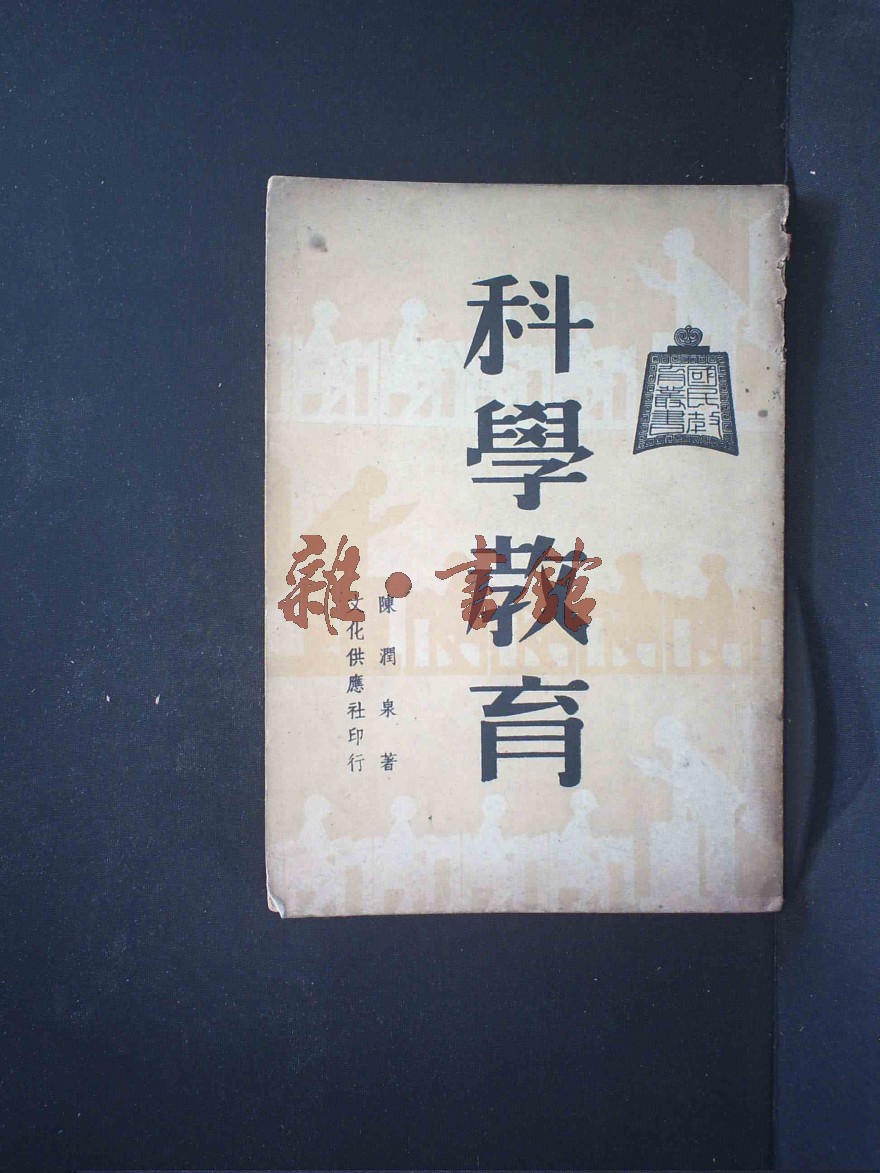 國民教
育叢書
科學教育
陳潤泉著
文化供應社印行
雜·書館